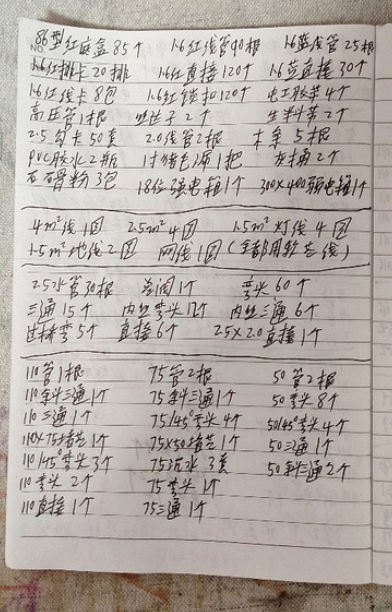 86型红底盒85个 1.6红线管90根 1.6蓝线管25根
NO
1.6红排卡20排 1.6红直接120个 1.6蓝直接30个
1.6红线卡8包 1.6红锁扣120个 电工胶带4个
高压管1根 2个 生料带2个
2.5勾卡50套 2.0线管2根 木条5根
PVC胶水2瓶 1把 灰桶2个
石膏粉3包 18位强电箱1个 300×400弱电箱1个
4m²线1圈 2.5m²4圈 1.5m²灯线4圈
1.5m²地线2圈 网线1圈(全部用软芯线)
25水管30根 总阀1个 弯头60个
三通15个 内丝弯头12个 内丝三通6个
过桥弯5个 直接6个 25×20直接1个
110管1根 75管2根 50管2根
110斜三通1个 75斜三通1个 50弯头8个
110三通1个 75/45°弯头4个 50/45°弯头4个
110×75 1个 75×50 1个 50三通1个
110/45°弯头3个 75沉水3套 50斜三通2个
110弯头2个 75弯头1个
110直接1个 75三通1个